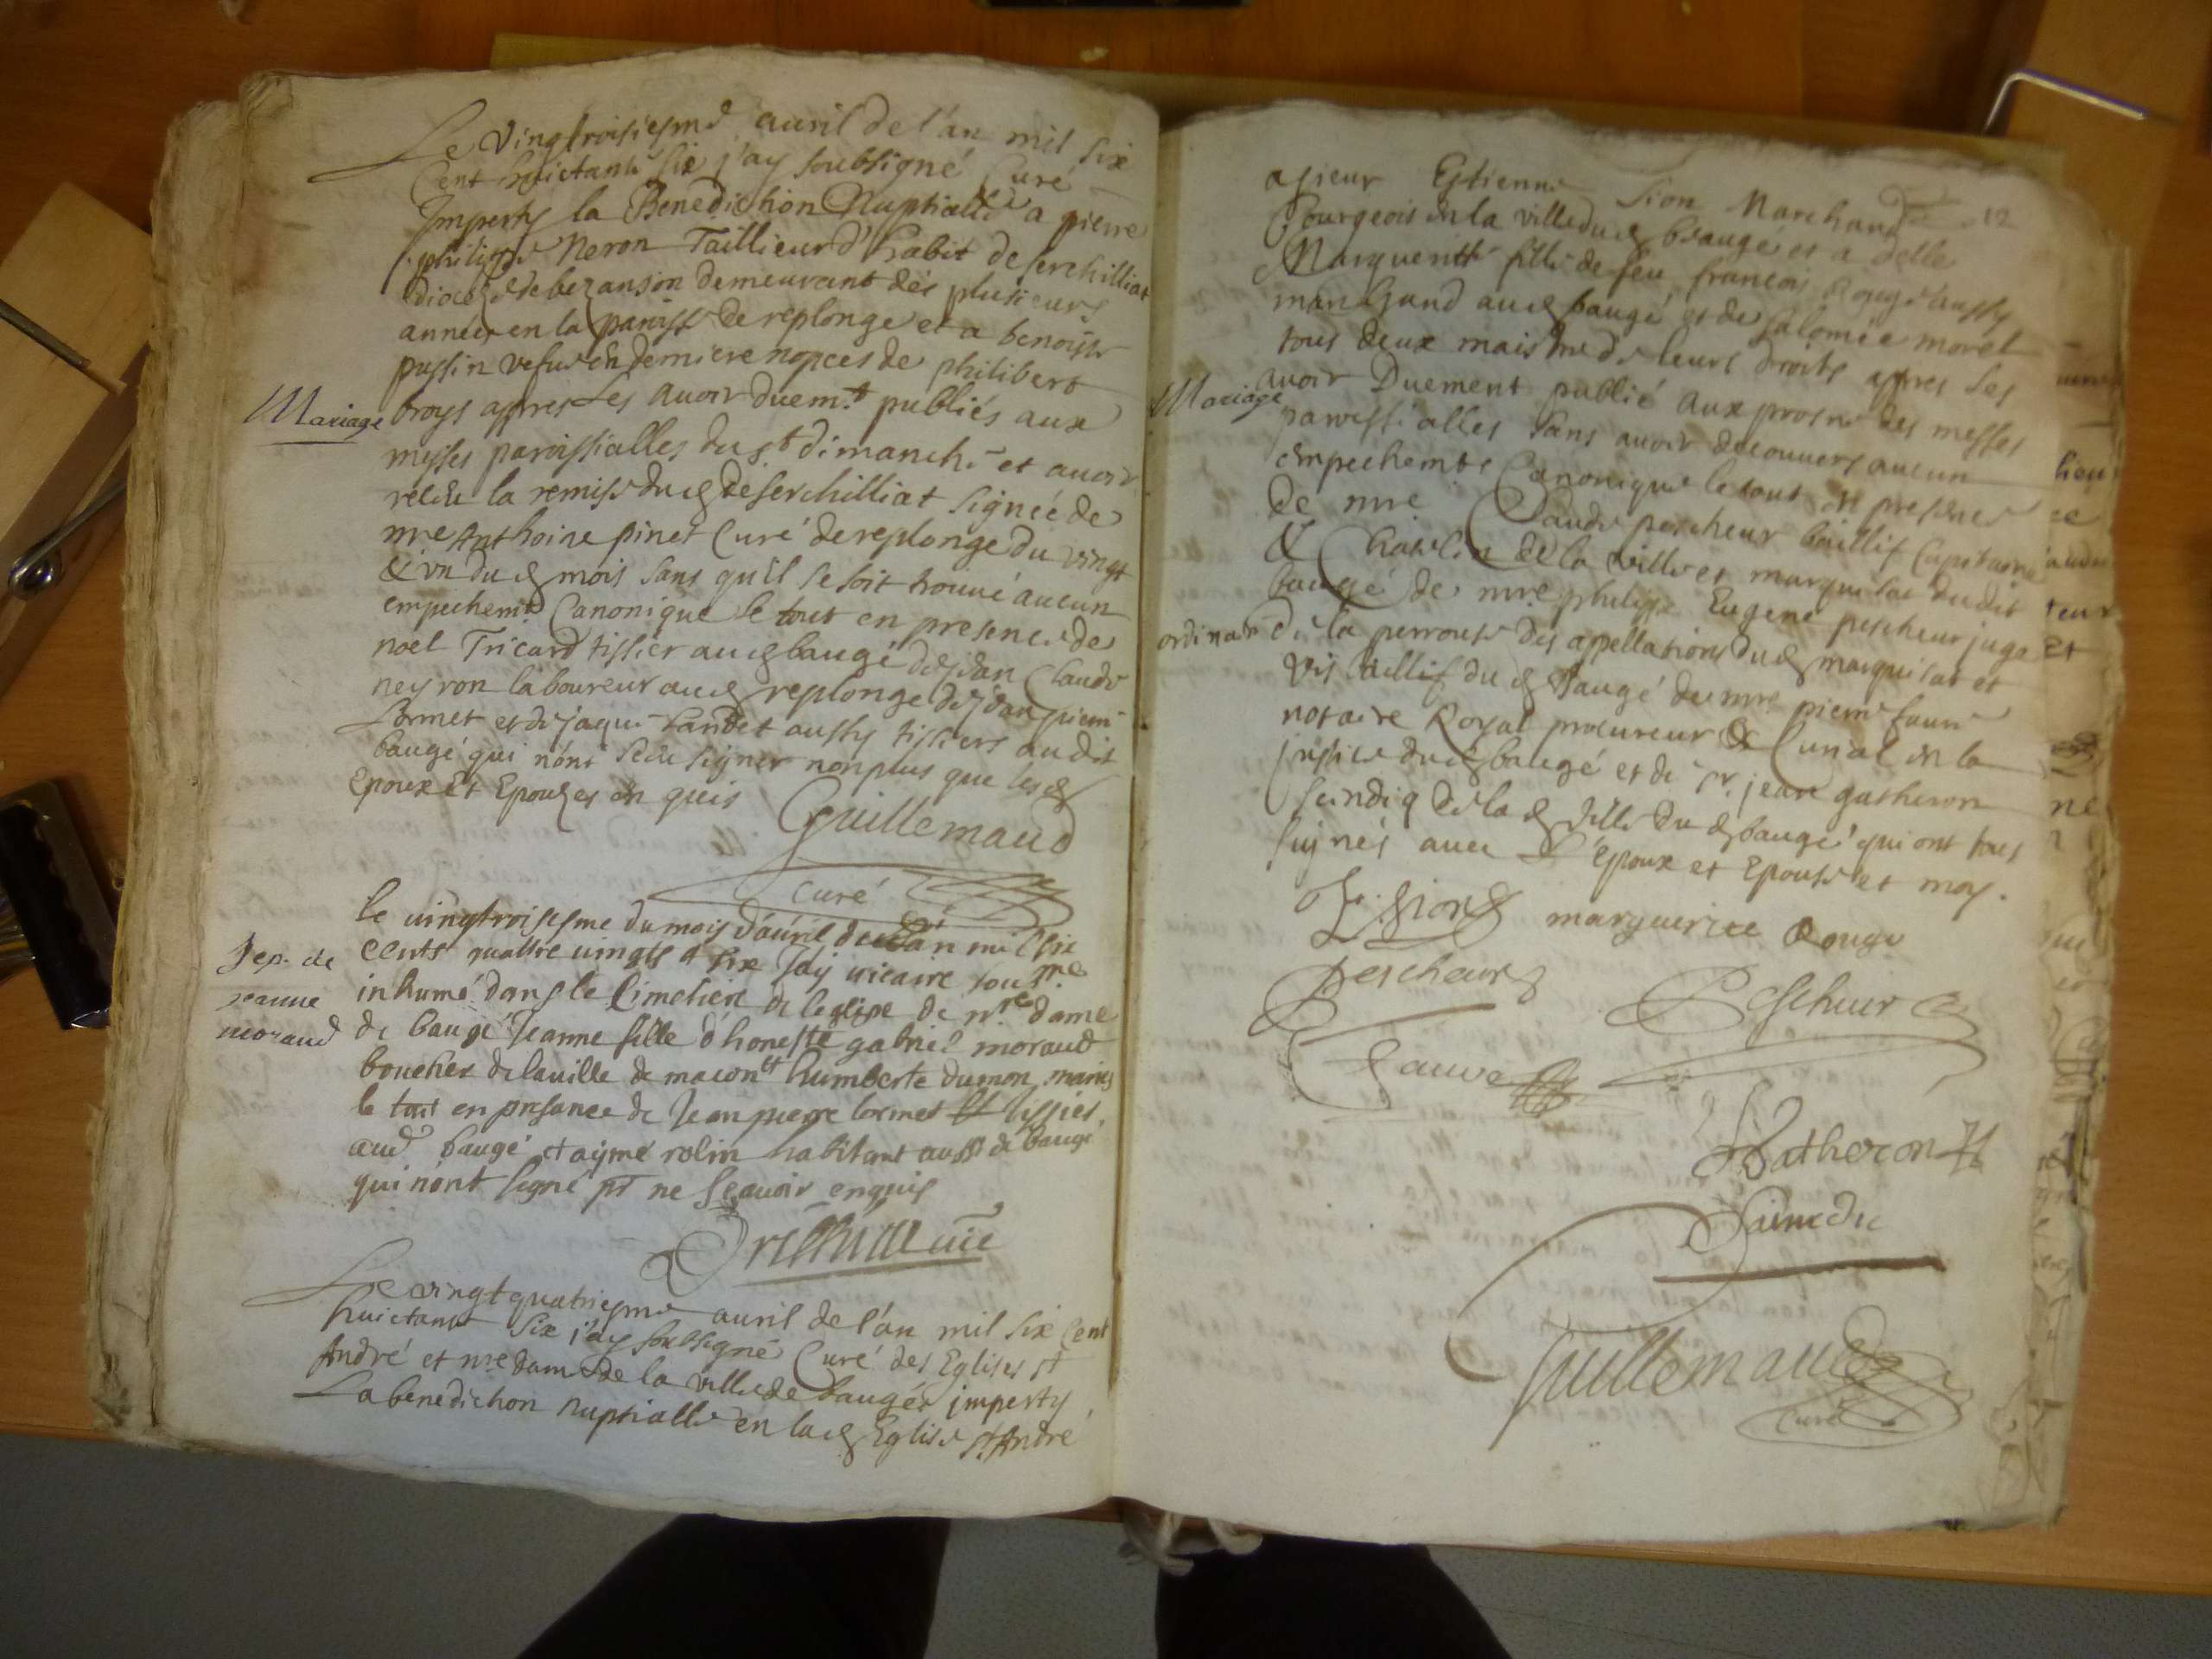 Le vingtroisiesme auril de l'an mil six
Cent huictante six j'ay soubsigné Curé
Imperty la Benediction Nuptialle a pierre
philippe Neron Taillieur d'habit de serchilliat
diocese de bezanson demeurant des plusieurs
années en la paroisse de replonge et a benoiste
pussin vefue en derniere nopces de philibert
Mariage
broys apres les auoir duem.t publiés aux
messes paroissialles du s.t dimanche et auoir
la remise du d de serchilliat signée de
mre Anthoine pinet Curé de replonge du vingt
& vn du d mois sans qu'il se soit trouué aucun
empechemt Canonique le tout en presence de
noel Tricard tissier au d baugé de jean Claude
neyron laboureur au d replonge de jean pierre
Lormet et de jaque aussy tissiers au dit
baugé qui nont sceu signer non plus que les d
Epoux Et Epouzes en quis
Guillemaud
Curé
le vingtroisesme du mois d'auril de l'an mil six
Sep. de
jeanne
moraud
cents quattre uingts & six Jay uicaire sous.né
inhumé dans le Cimetiere de leglise de n.re dame
de baugé Jeanne fille d'honeste gabriel moraud
boucher de la uille de macon et humberte dumon maries
le tout en presance de Jean pierre lormet tissier
aud baugé et aymé rolin habitant aussi de baugé
qui nont signé pr ne scauoir enquis
uic
Le vingt quatriesme auril de l'an mil six Cent
huictante six j'ay soubsigné Curé des Eglises st
André et nre dame de la ville de baugé imperty
La benediction nuptialle en la d Eglise st André
12
a sieur Estienne Sion Marchand
Bourgeois en la ville du d beaugé et a delle
Marguerite fille de feu francois Rouge aussy
marchand au d baugé et de Salomée morel
tous deux maistre de leurs droits apres les
Mariage
auoir Duement publié aux prosne des messes
paroissialles sans auoir decouuers aucun
empechemts Canonique le tout en presence
De mre Claude pescheur baillif Capitaine
& Chatelin de la ville et marquisat du dit
baugé de mre philippe Eugene pescheur juge
ordinaire de la perrouse des appellations du d marquisat et
vis baillif du d Baugé de mre pierre faure
notaire Royal procureur & Curial en la
justice du d baugé et de sr. jean gatheron
scindiq de la d ville du d baugé qui ont tous
signés auec L'epoux et Epouse et moy.
E. Sion marguerite Rouge
Pescheur
Pescheur
Faure
Gatheron
Guillemaud
Curé